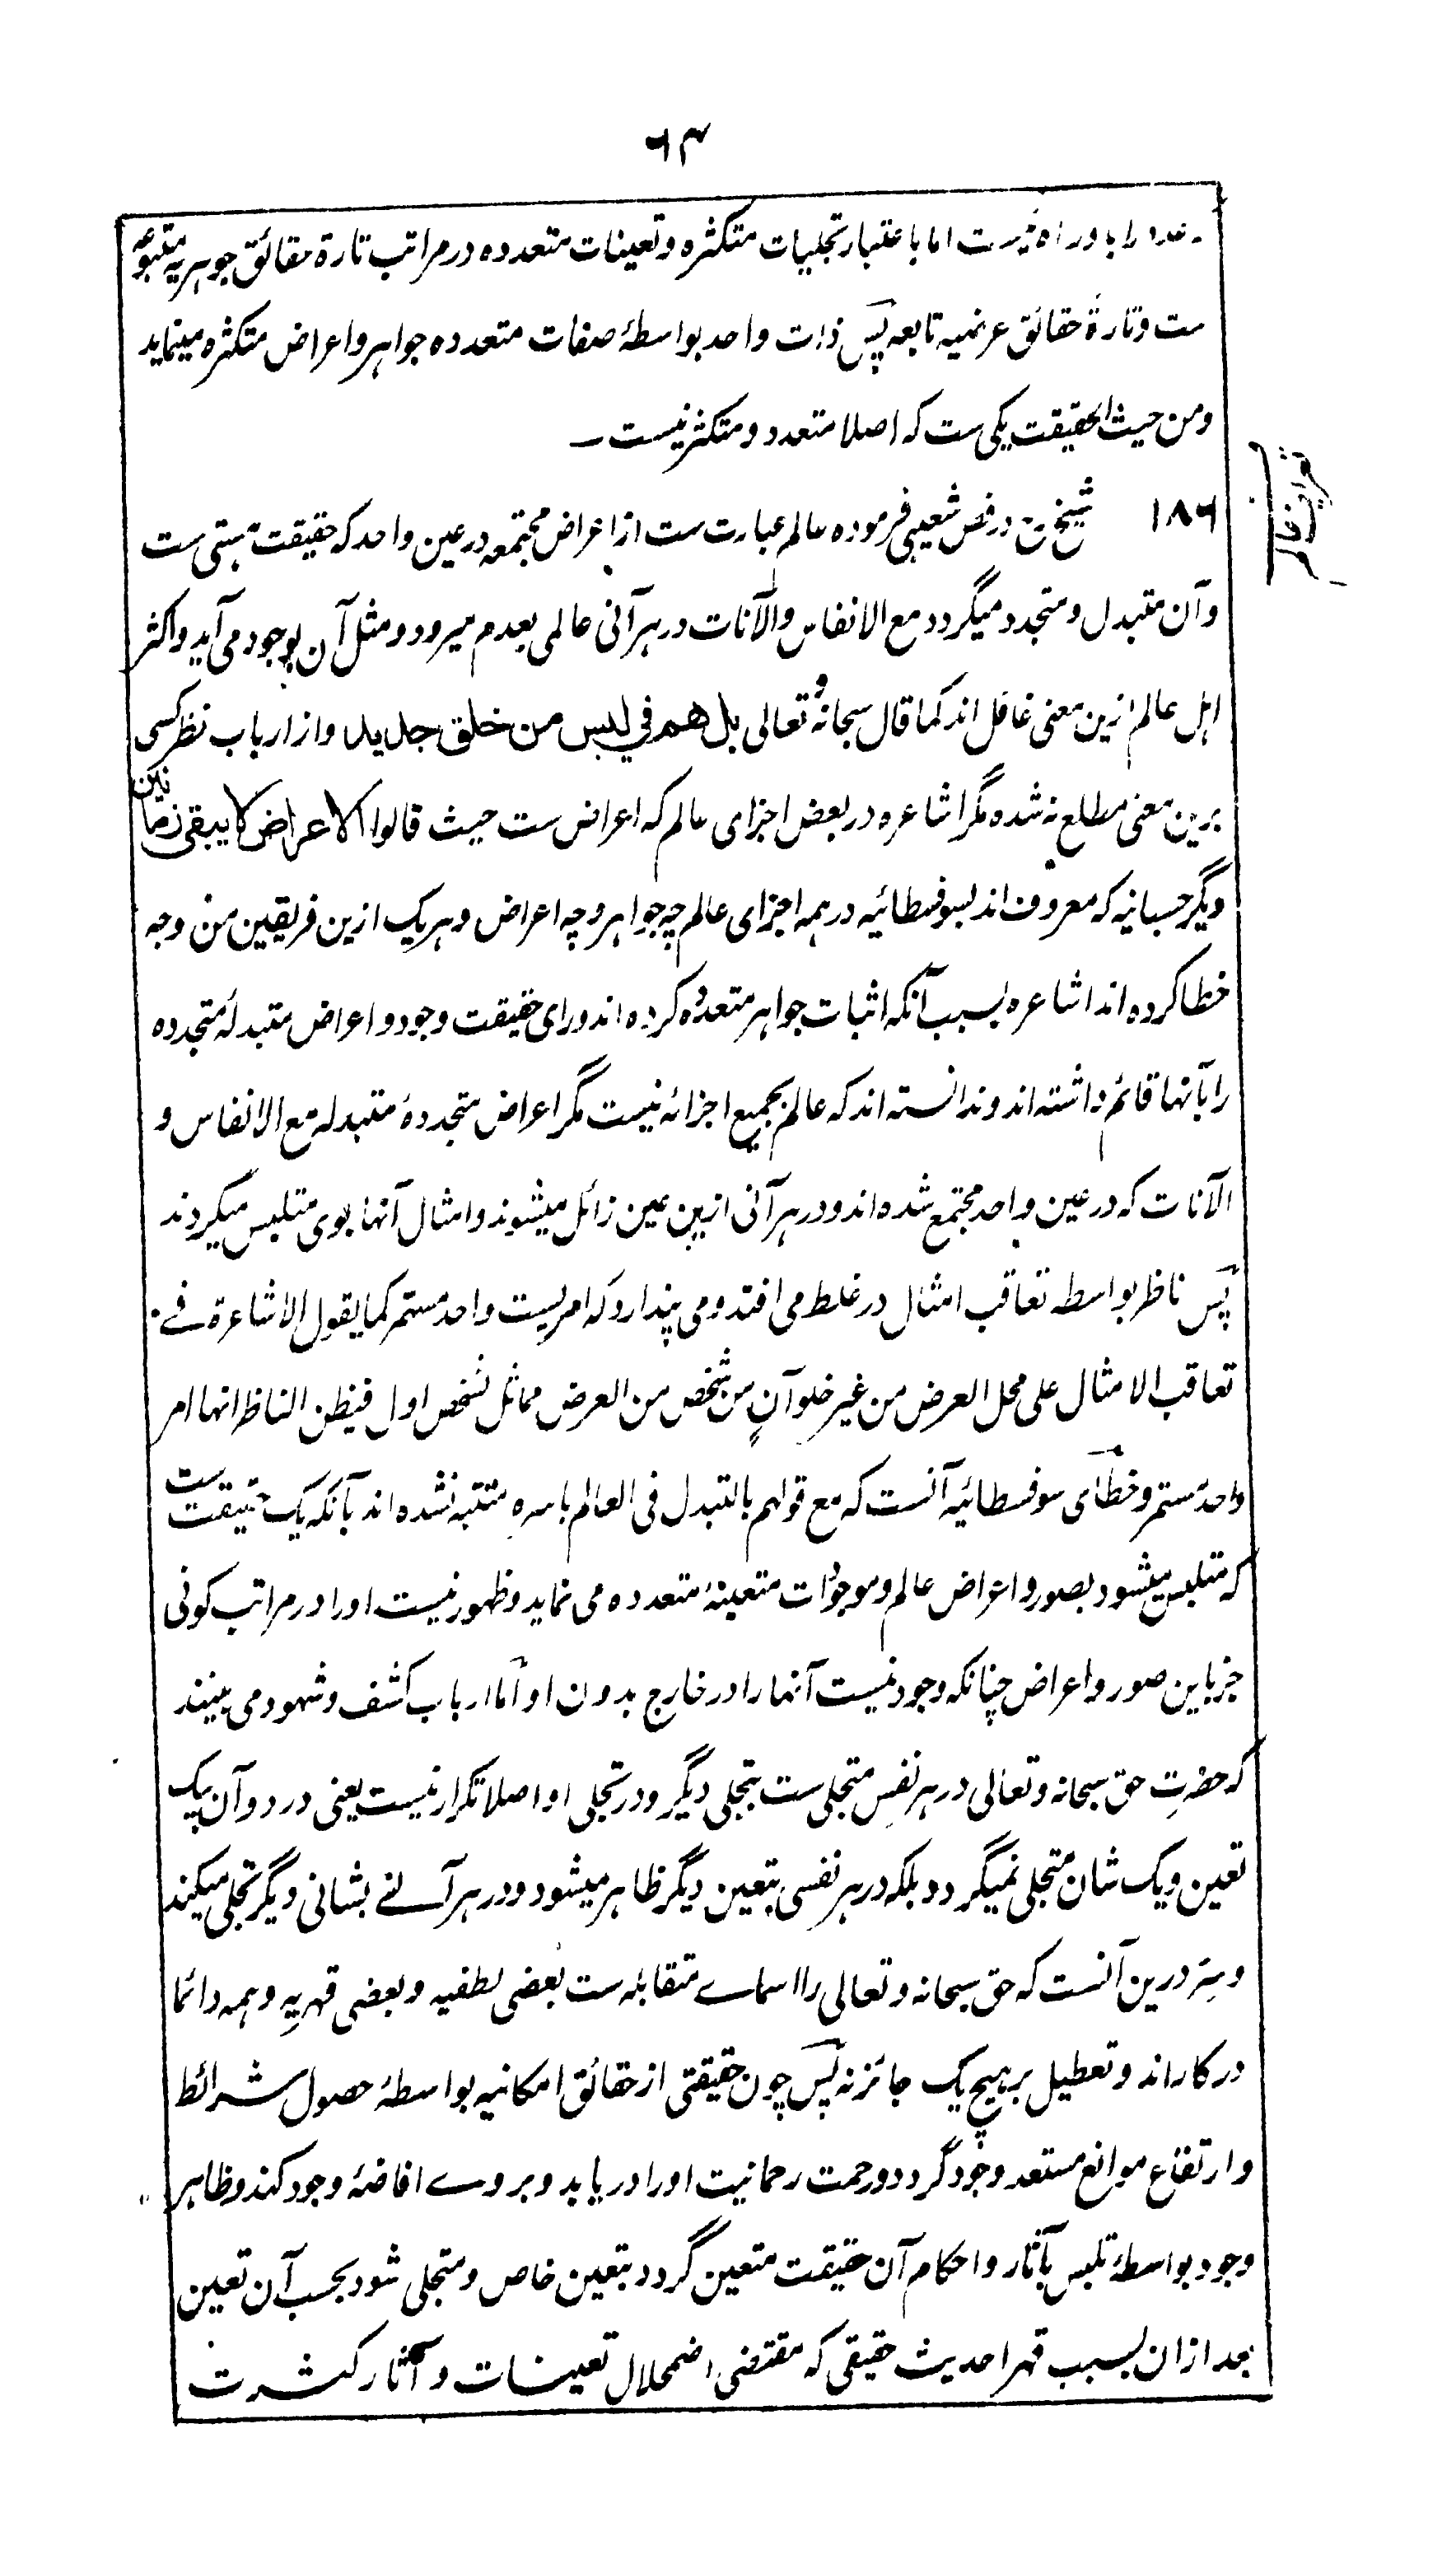 ۶۳
اما باعتبار تجلیات متکثره و تعینات متعدده در مراتب تارة حقائق جوهریه متبوعه
ست و تارة حقائق عرضیه تابعه پس ذات واحد بواسطهٔ صفات متعدده جواهر و اعراض متکثره مینماید
و من حیث الحقیقت یکی ست که اصلا متعدد و متکثر نیست ـ
۱۸۶ شیخ رح در فص شعیبی فرموده عالم عبارت ست از اعراض مجتمعه در عین واحد که حقیقت هستی ست
و آن متبدل و متجدد میگردد مع الانفاس والآنات در هر آنی عالمی بعدم میرود و مثل آن بوجود می آید و اکثر
اهل عالم ازین معنی غافل اند کما قال سبحانهٗ و تعالی بل هم في لبس من خلق جدید و از ارباب نظر کسی
برین معنی مطلع نه شده مگر اشاعره در بعض اجزای عالم که اعراض ست حیث قالوا الاعراض لا یبقی زمانین
دیگر حسبانیه که معروف اند بسوفسطائیه در همه اجزای عالم چه جواهر و چه اعراض و هر یک ازین فریقین من وجه
خطا کرده اند اشاعره بسبب آنکه اثبات جواهر متعدده کرده اند ورای حقیقت وجود و اعراض متبدلهٔ متجدده
را بآنها قائم داشته اند و ندانسته اند که عالم بجمیع اجزائه نیست مگر اعراض متجددهٔ متبدله مع الانفاس و
الآنات که در عین واحد مجتمع شده اند و در هر آنی ازین عین زائل میشوند و امثال آنها بوی متلبس میگردند
پس ناظر بواسطه تعاقب امثال در غلط می افتد و می پندارد که امریست واحد مستمر کما یقول الاشاعرة فے
تعاقب الامثال علی محل العرض من غیر خلو آنٍ من شخص من العرض مماثل لشخص اول فیظن الناظر انها امر
واحد مستمر و خطای سوفسطائیه آنست که مع قولهم بالتبدل فی العالم باسرهِ متنبه نشده اند بآنکه یک حقیقت ست
که متلبس میشود بصور و اعراض عالم و موجودات متعینهٔ متعدده می نماید و ظهور نیست او را در مراتب کونی
جز باین صور و اعراض چنانکه وجود نیست آنها را در خارج بدون او اما ارباب کشف و شهود می بینند
که حضرتِ حق سبحانه و تعالی در هر نفس متجلی ست بتجلی دیگر و در تجلی او اصلا تکرار نیست یعنی در دو آن بیک
تعین و یک شان متجلی نمیگردد بلکه در هر نفسی بتعین دیگر ظاهر میشود و در هر آنے بشانی دیگر تجلی میکند
و سِر درین آنست که حق سبحانه و تعالی را اسماے متقابله ست بعضی لطفیه و بعضی قهریه و همه دائما
در کار اند و تعطیل بر هیچ یک جائز نه پس چون حقیقتی از حقائق امکانیه بواسطهٔ حصول شرائط
و ارتفاع موانع مستعد وجود گردد و رحمت رحمانیت او را دریابد و بروے افاضهٔ وجود کند و ظاهر
وجود بواسطهٔ تلبس بآثار و احکام آن حقیقت متعین گردد بتعین خاص و متجلی شود بحسب آن تعین
بعد ازان بسبب قهر احدیث حقیقی که مقتضی اضمحلال تعینات و آثار کثرت